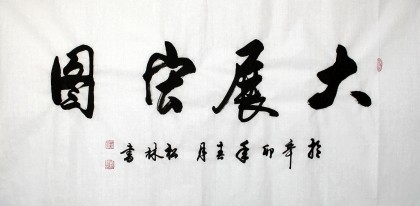 大展宏图
於辛卯年春月 松林書